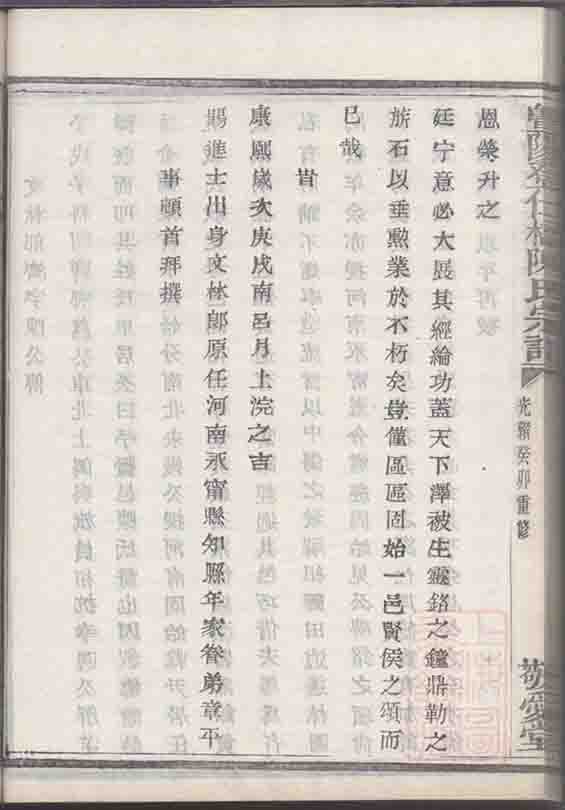 恩榮升之
廷宁意必大展其經綸功蓋天下澤被生靈銘之鐘鼎勒之
旂石以垂勲業於不朽矣豈僅區區固始一邑賢侯之頌而
已哉
旹
康熙歲次庚戌南呂月上浣之吉
賜進士出身文林郎原任河南永甯縣知縣年家眷弟章平
事頓首拜撰
陳氏宗譜
光緒癸卯重修
敬愛堂